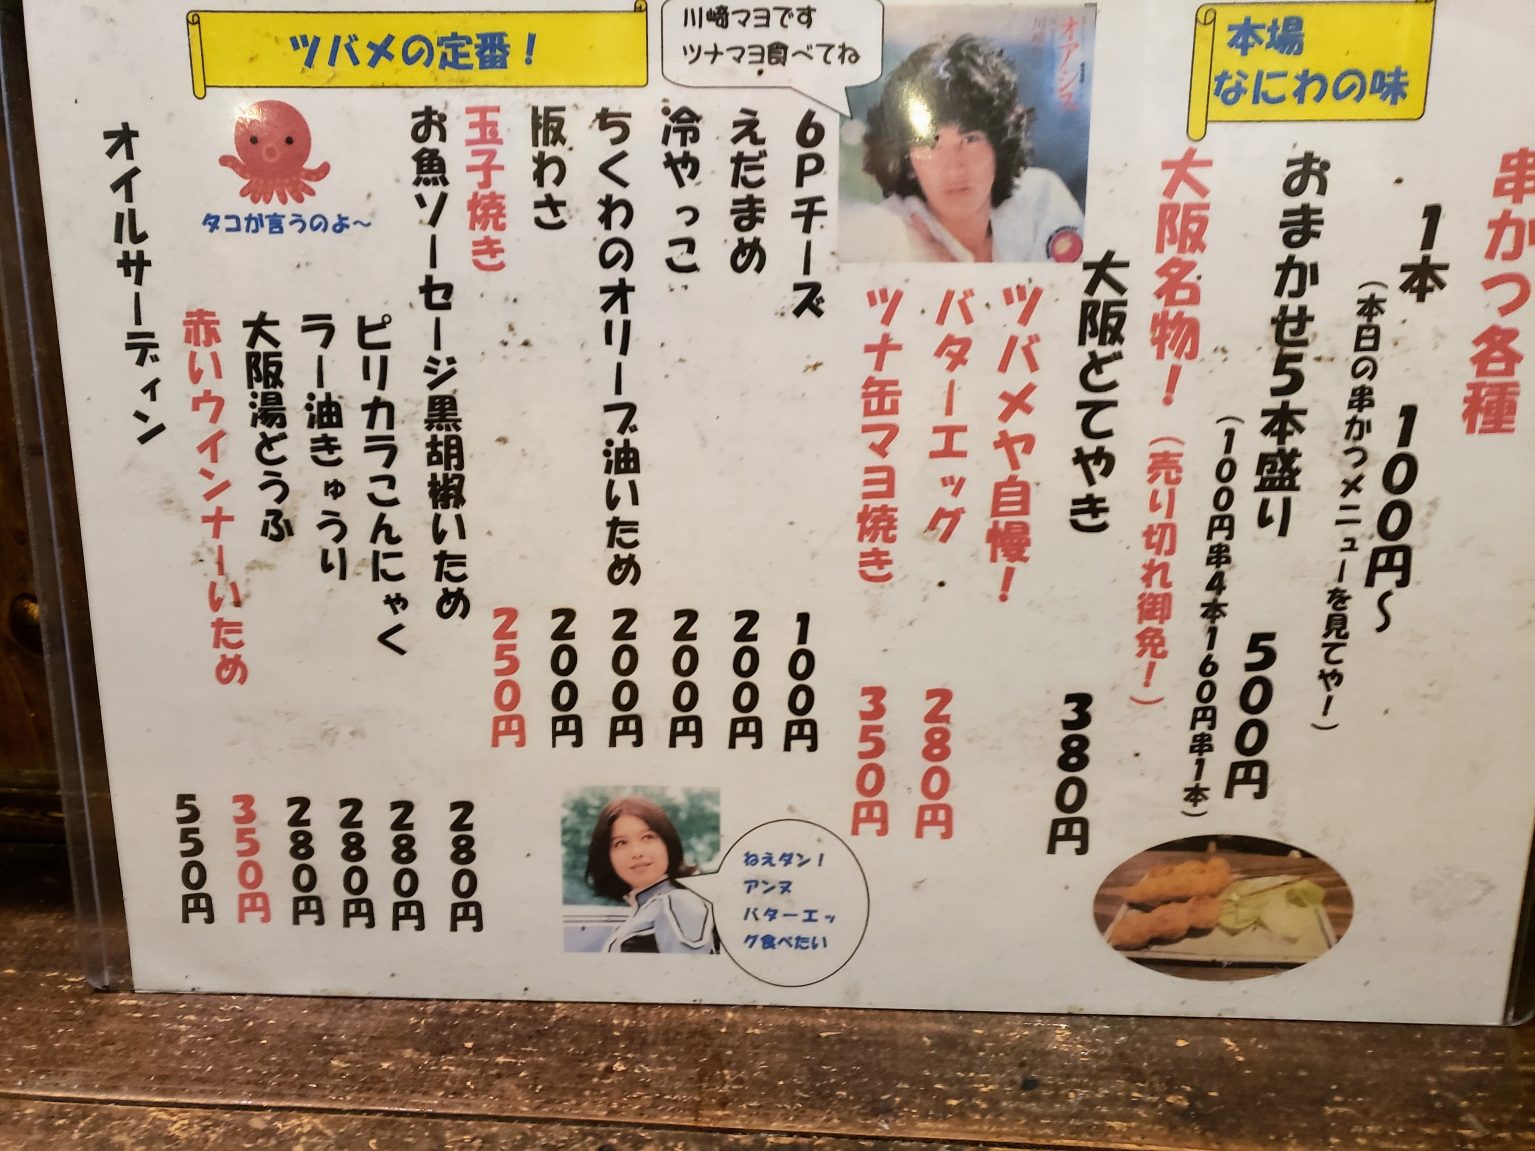 本場
なにわの味
串かつ各種
1本 100円~
(本日の串かつメニューを見てや!)
おまかせ5本盛り 500円
(100円串4本160円串1本)
大阪名物! (売り切れ御免!)
大阪どてやき 380円
ツバメヤ自慢!
バターエッグ 280円
ツナ缶マヨ焼き 350円
オアシス
川崎マヨです
ツナマヨ食べてね
ツバメの定番!
6Pチーズ 100円
えだまめ 200円
冷やっこ 200円
ちくわのオリーブ油いため 200円
板わさ 200円
玉子焼き 250円
お魚ソーセージ黒胡椒いため 280円
ピリカラこんにゃく 280円
ラー油きゅうり 280円
大阪湯どうふ 280円
赤いウインナーいため 350円
オイルサーディン 550円
タコが言うのよ~
ねえダン!
アンヌ
バターエッ
グ食べたい